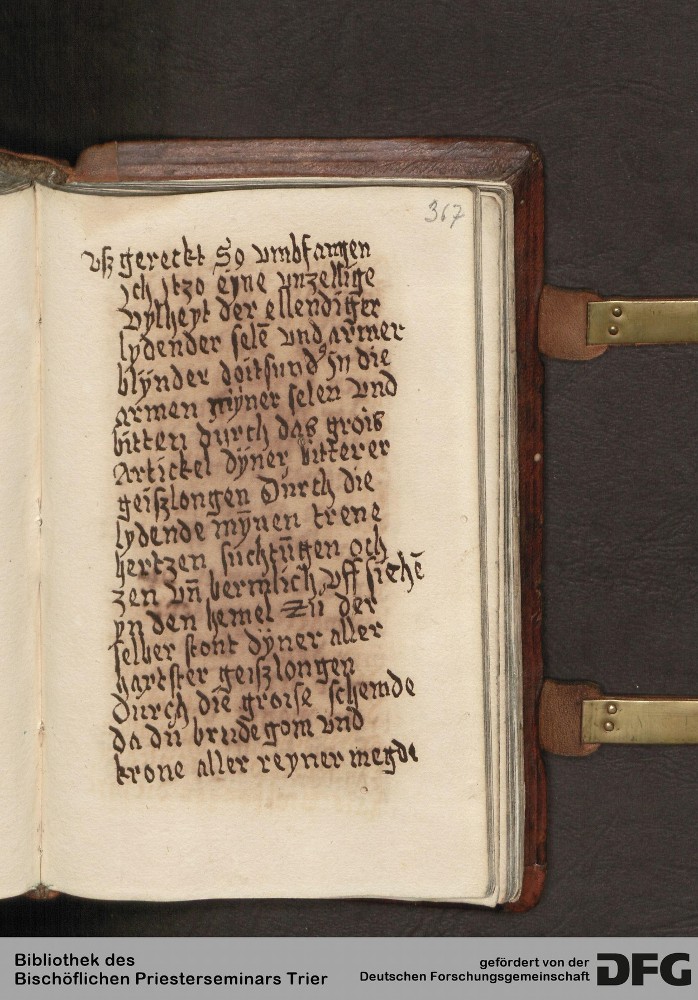 367
vsz gereckt So vmbfangen
ich itzo eyne vnzellige
vylheyt der ellendiger
lydender selē vnd armer
blynder doitsund' in die
armen myner selen vnd
bitten durch das grois
Artickel dyner bitterer
geiszlongen Durch die
lydende mȳnen trene
hertzen suchtūgen och
zen vn̄ bermlich vff siehē
yn den hemel zu der
selber stont dyner aller
hartster geiszlongen
Durch die groise schemde
da du brudegom vnd
krone aller reyner megde
Bibliothek des
Bischöflichen Priesterseminars Trier
gefördert von der
Deutschen Forschungsgemeinschaft DFG